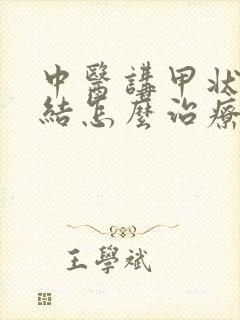 中醫講甲狀
結怎麼治療
王學斌